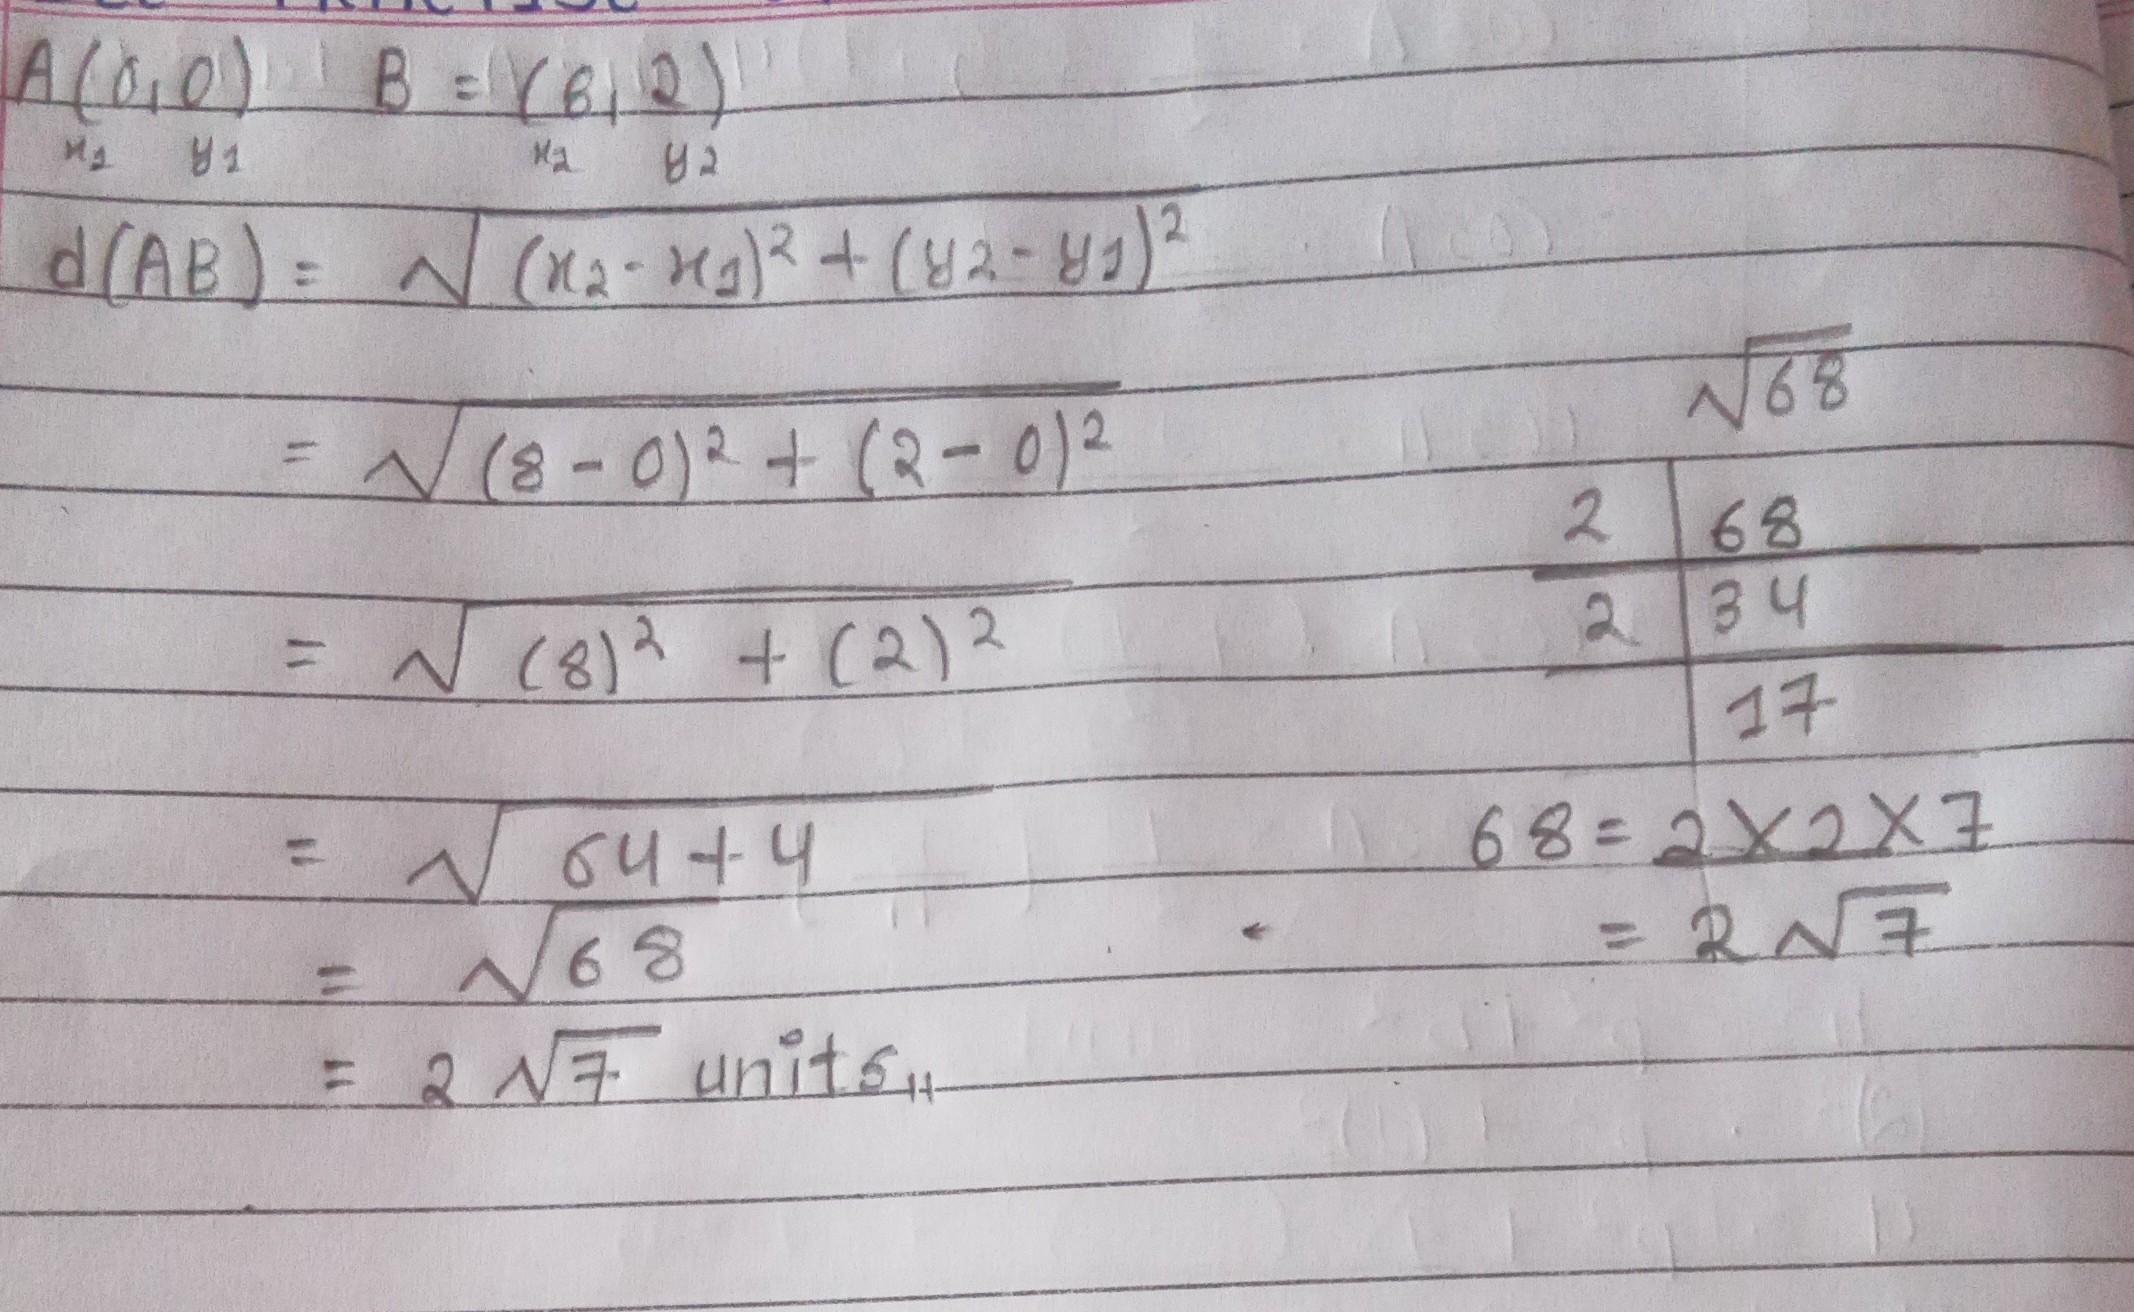 A(0,0) B = (8,2)
x1 y1 x2 y2
d(AB) = √(x2-x1)² + (y2-y1)²
= √(8-0)² + (2-0)²
= √(8)² + (2)²
= √64+4
= √68
= 2√7 units,,
√68
2 | 68
2 | 34
17
68 = 2×2×7
= 2√7